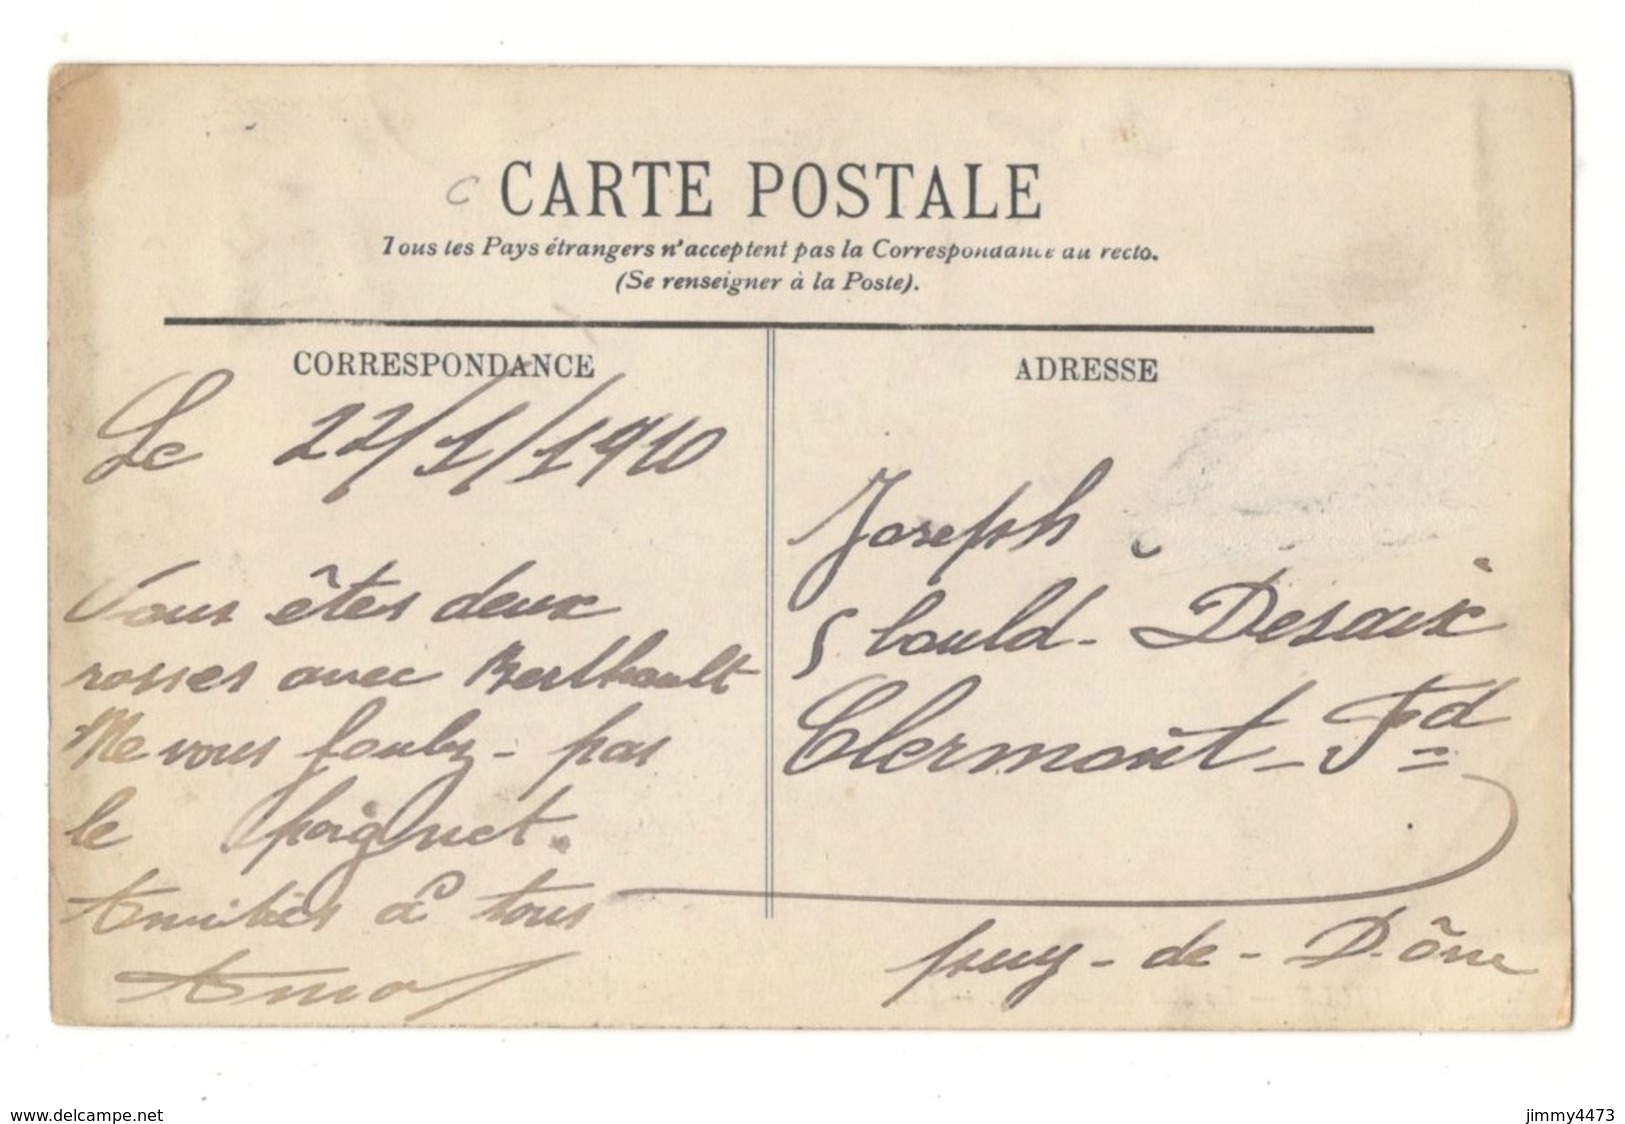 CARTE POSTALE
Tous les Pays étrangers n'acceptent pas la Correspondance au recto.
(Se renseigner à la Poste).
CORRESPONDANCE
Le 22/1/1910
Vous êtes deux
rosses avec Berthault
Ne vous foulez pas
le poignet.
Amitiés à tous
ADRESSE
Joseph
5 bould- Desaix
Clermont-Fd
puy-de-Dôme
www.delcampe.net
jimmy4473